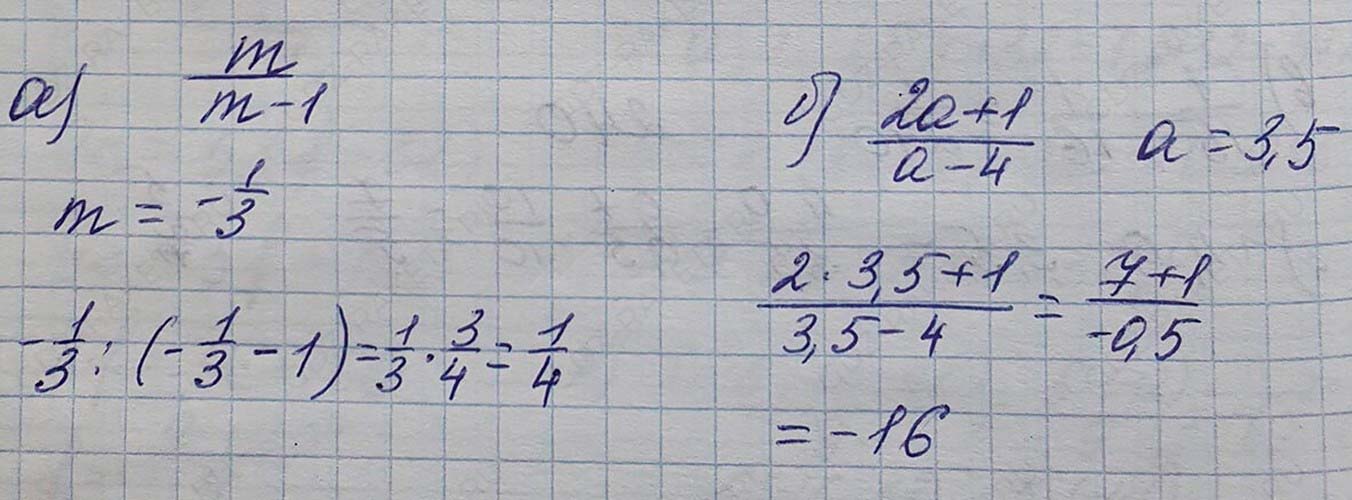 а) m/(m-1)
m = -1/3
-1/3 : (-1/3 - 1) = 1/3 · 3/4 = 1/4
б) (2a+1)/(a-4) a = 3,5
(2·3,5+1)/(3,5-4) = (7+1)/(-0,5)
= -16